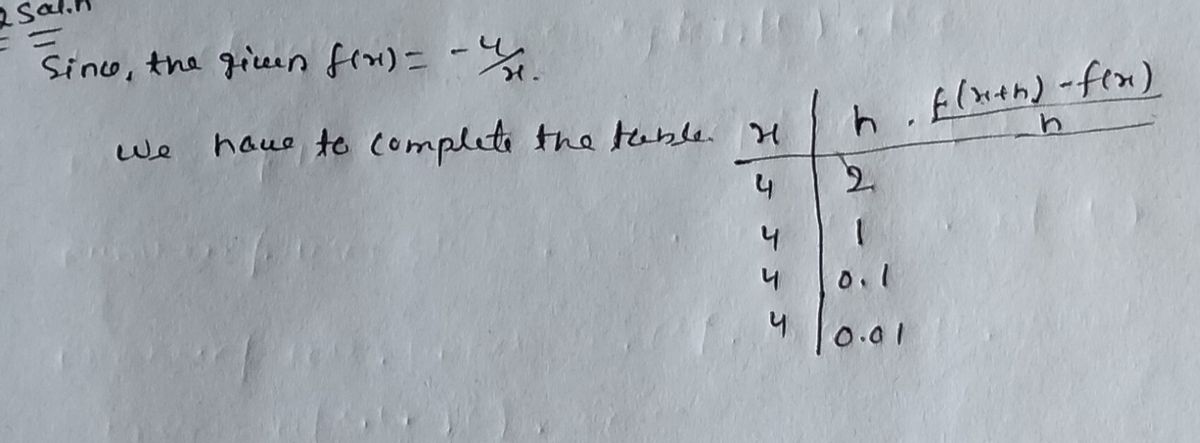 2 Sol.n
Since, the given f(x) = -4/x.
we have to complete the table.
x | h . f(x+h) - f(x) / h
4 | 2
4 | 1
4 | 0.1
4 | 0.01